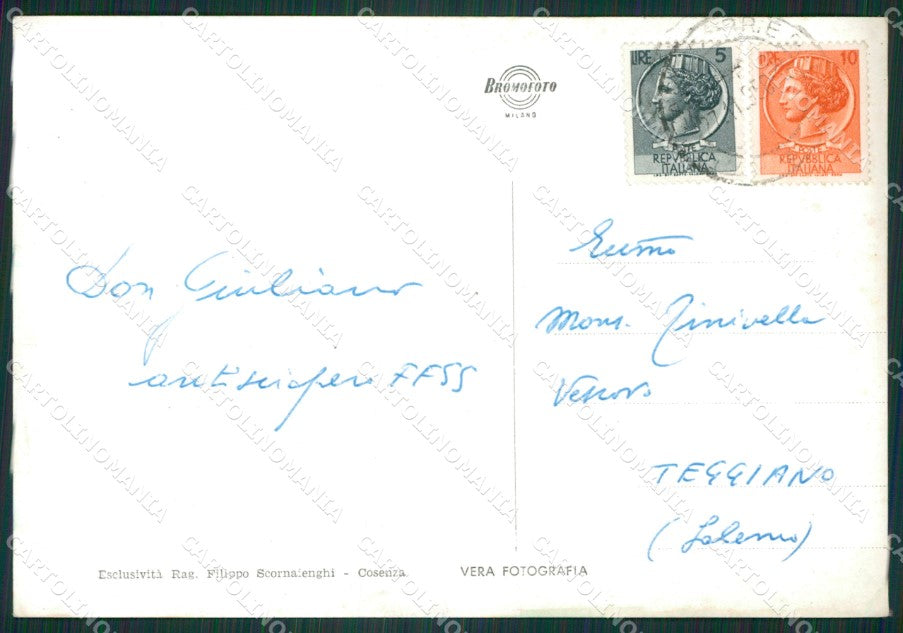 BROMOFOTO
MILANO
LIRE 5
POSTE
REPVBBLICA
ITALIANA
LIRE 10
POSTE
REPVBBLICA
ITALIANA
Don Giuliano
antisciopero FFSS
Mons.
Vescovo
TEGGIANO
(Salerno)
Esclusività Rag. Filippo Scornaienghi - Cosenza
VERA FOTOGRAFIA
CARTOLINOMANIA